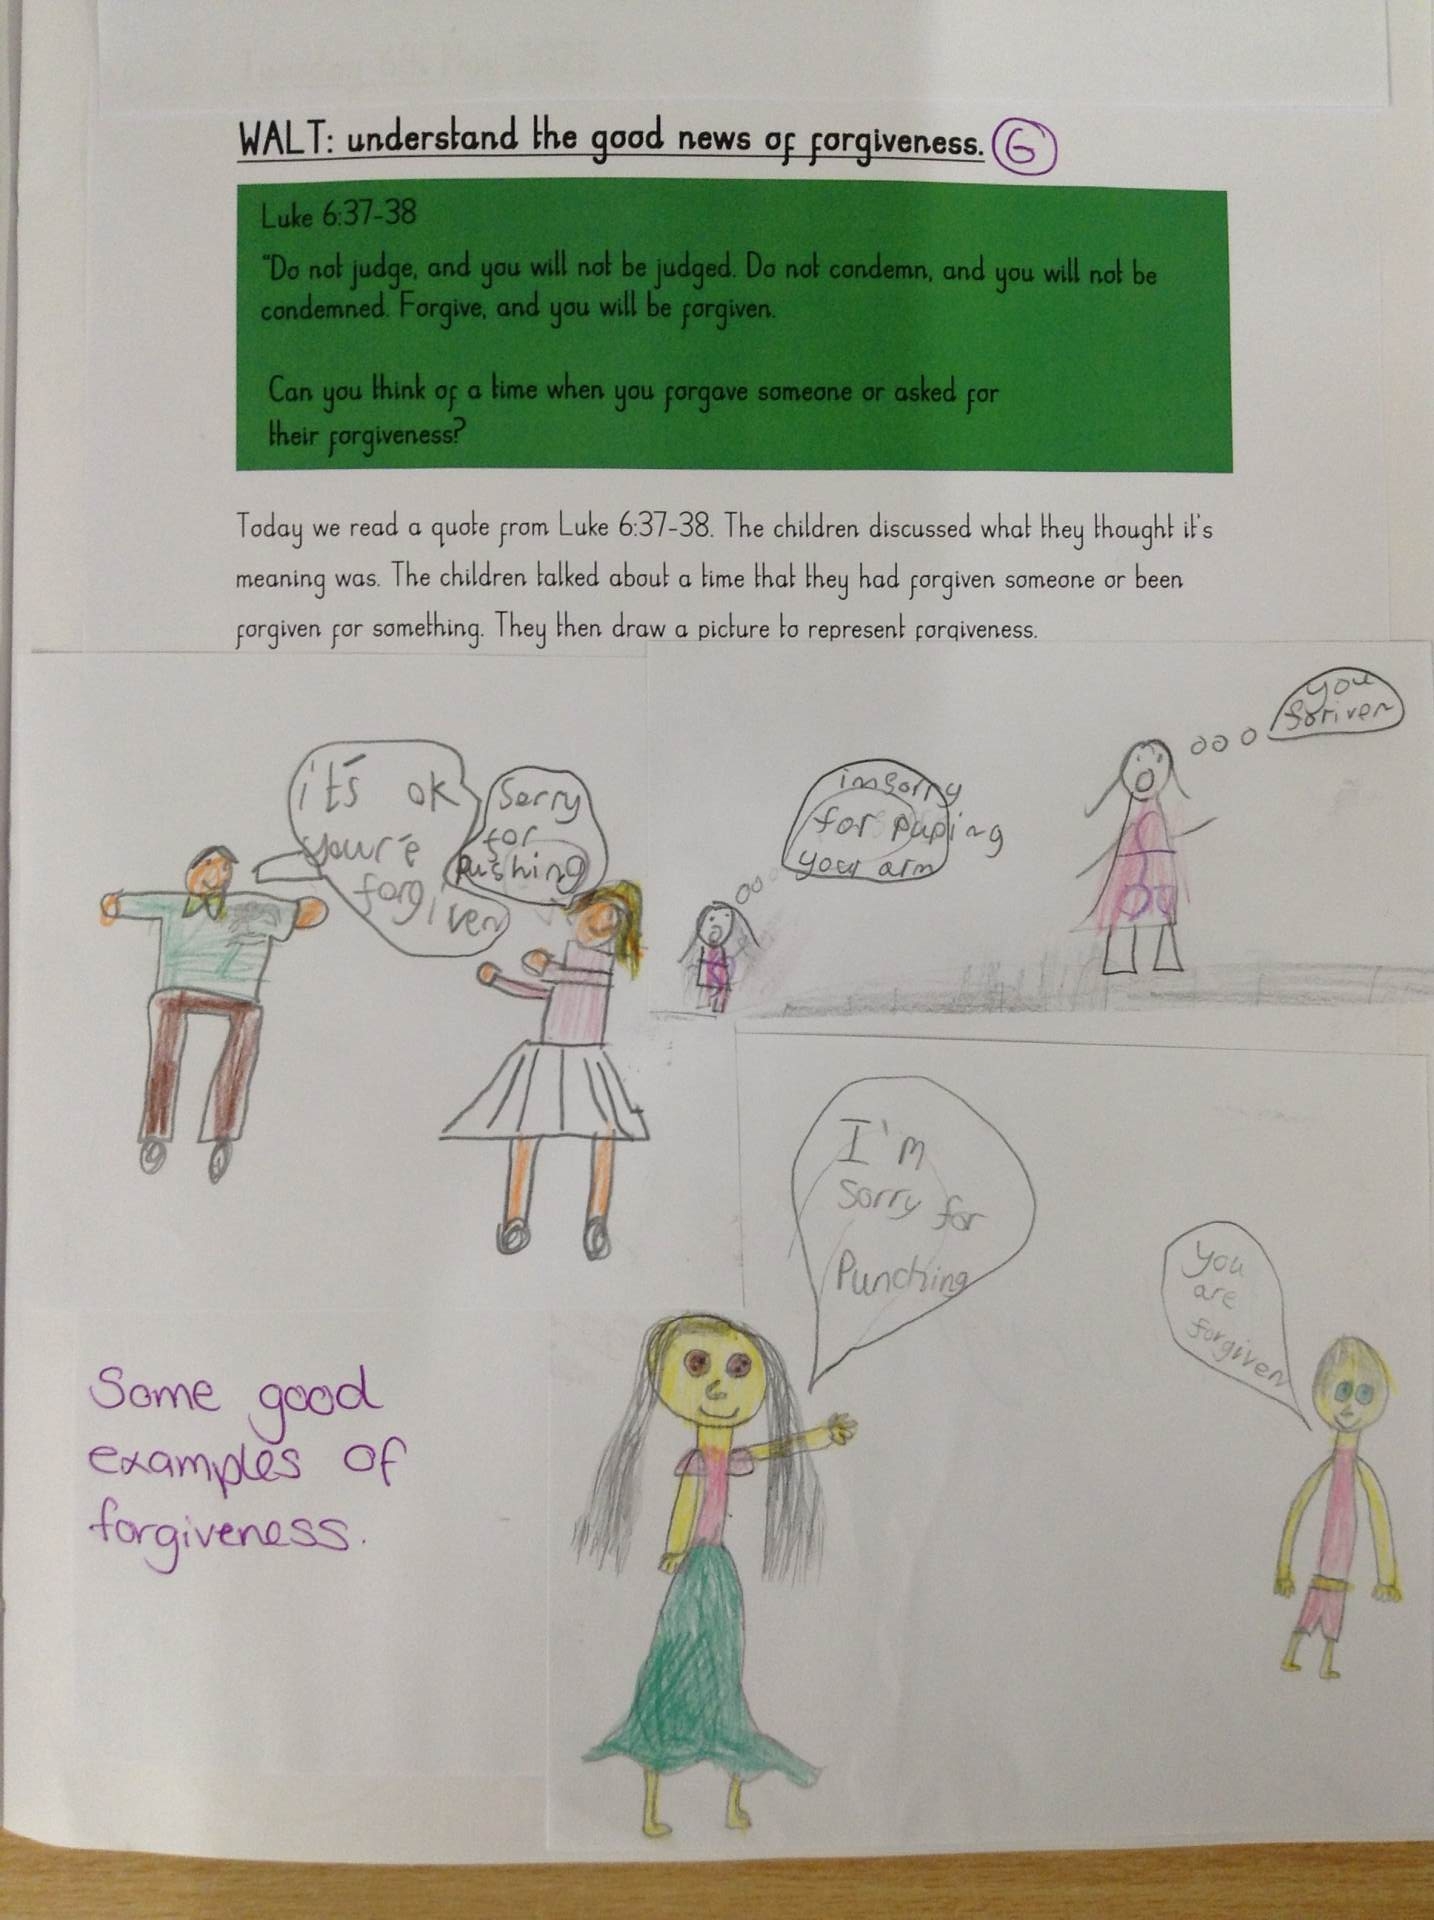 WALT: understand the good news of forgiveness. G
Luke 6:37-38
"Do not judge, and you will not be judged. Do not condemn, and you will not be
condemned. Forgive, and you will be forgiven.
Can you think of a time when you forgave someone or asked for
their forgiveness?
Today we read a quote from Luke 6:37-38. The children discussed what they thought it's
meaning was. The children talked about a time that they had forgiven someone or been
forgiven for something. They then draw a picture to represent forgiveness.
it's ok
your'e
forgiven
Sorry
for
Pushing
imsorry
for puping
your arm
you
foriven
I'm
Sorry for
Punching
you
are
forgiven
Some good
examples of
forgiveness.